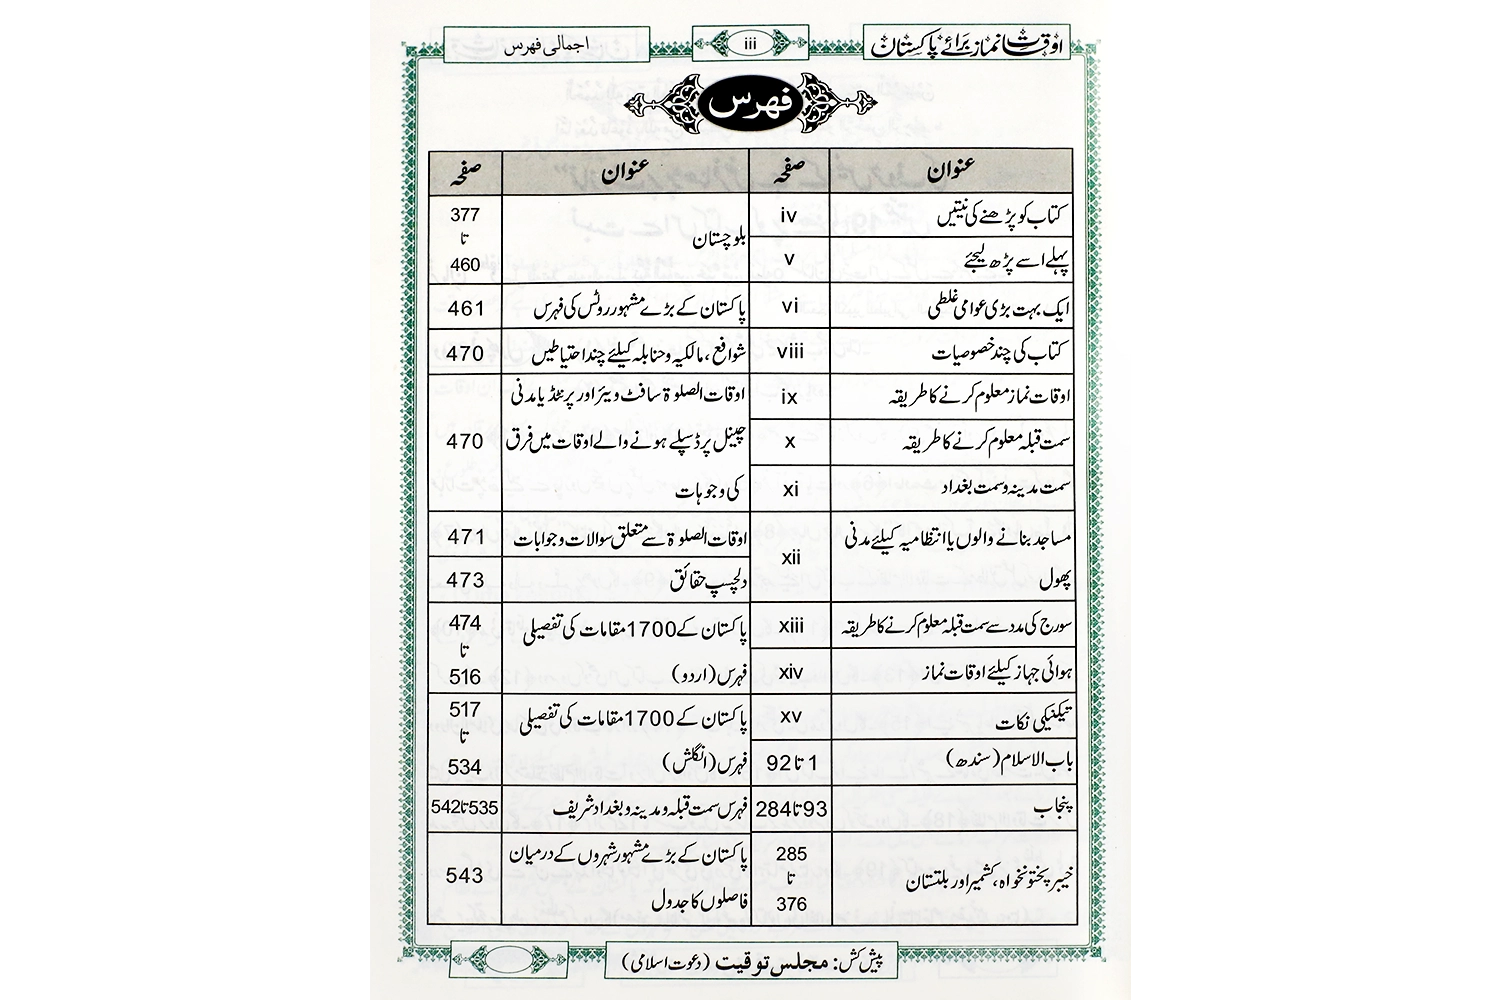 اوقات نماز برائے پاکستان
iii
اجمالی فہرس
فہرس
عنوان
صفحہ
کتاب کو پڑھنے کی نیتیں
iv
پہلے اسے پڑھ لیجئے
v
ایک بہت بڑی عوامی غلطی
vi
کتاب کی چند خصوصیات
viii
اوقات نماز معلوم کرنے کا طریقہ
ix
سمت قبلہ معلوم کرنے کا طریقہ
x
سمت مدینہ و سمت بغداد
xi
مساجد بنانے والوں یا انتظامیہ کیلئے مدنی
پھول
xii
سورج کی مدد سے سمت قبلہ معلوم کرنے کا طریقہ
xiii
ہوائی جہاز کیلئے اوقات نماز
xiv
تیکنیکی نکات
xv
باب الاسلام (سندھ)
1 تا 92
پنجاب
93 تا 284
خیبر پختونخواہ، کشمیر اور بلتستان
285
تا
376
عنوان
صفحہ
بلوچستان
377
تا
460
پاکستان کے بڑے مشہور روٹس کی فہرس
461
شوافع، مالکیہ و حنابلہ کیلئے چند احتیاطیں
470
اوقات الصلوۃ سافٹ ویئر اور پرنٹڈ یا مدنی
چینل پر ڈسپلے ہونے والے اوقات میں فرق
کی وجوہات
470
اوقات الصلوۃ سے متعلق سوالات و جوابات
471
دلچسپ حقائق
473
پاکستان کے 1700 مقامات کی تفصیلی
فہرس (اردو)
474
تا
516
پاکستان کے 1700 مقامات کی تفصیلی
فہرس (انگلش)
517
تا
534
فہرس سمت قبلہ و مدینہ و بغداد شریف
535 تا 542
پاکستان کے بڑے مشہور شہروں کے درمیان
فاصلوں کا جدول
543
پیش کش: مجلس توقیت (دعوت اسلامی)